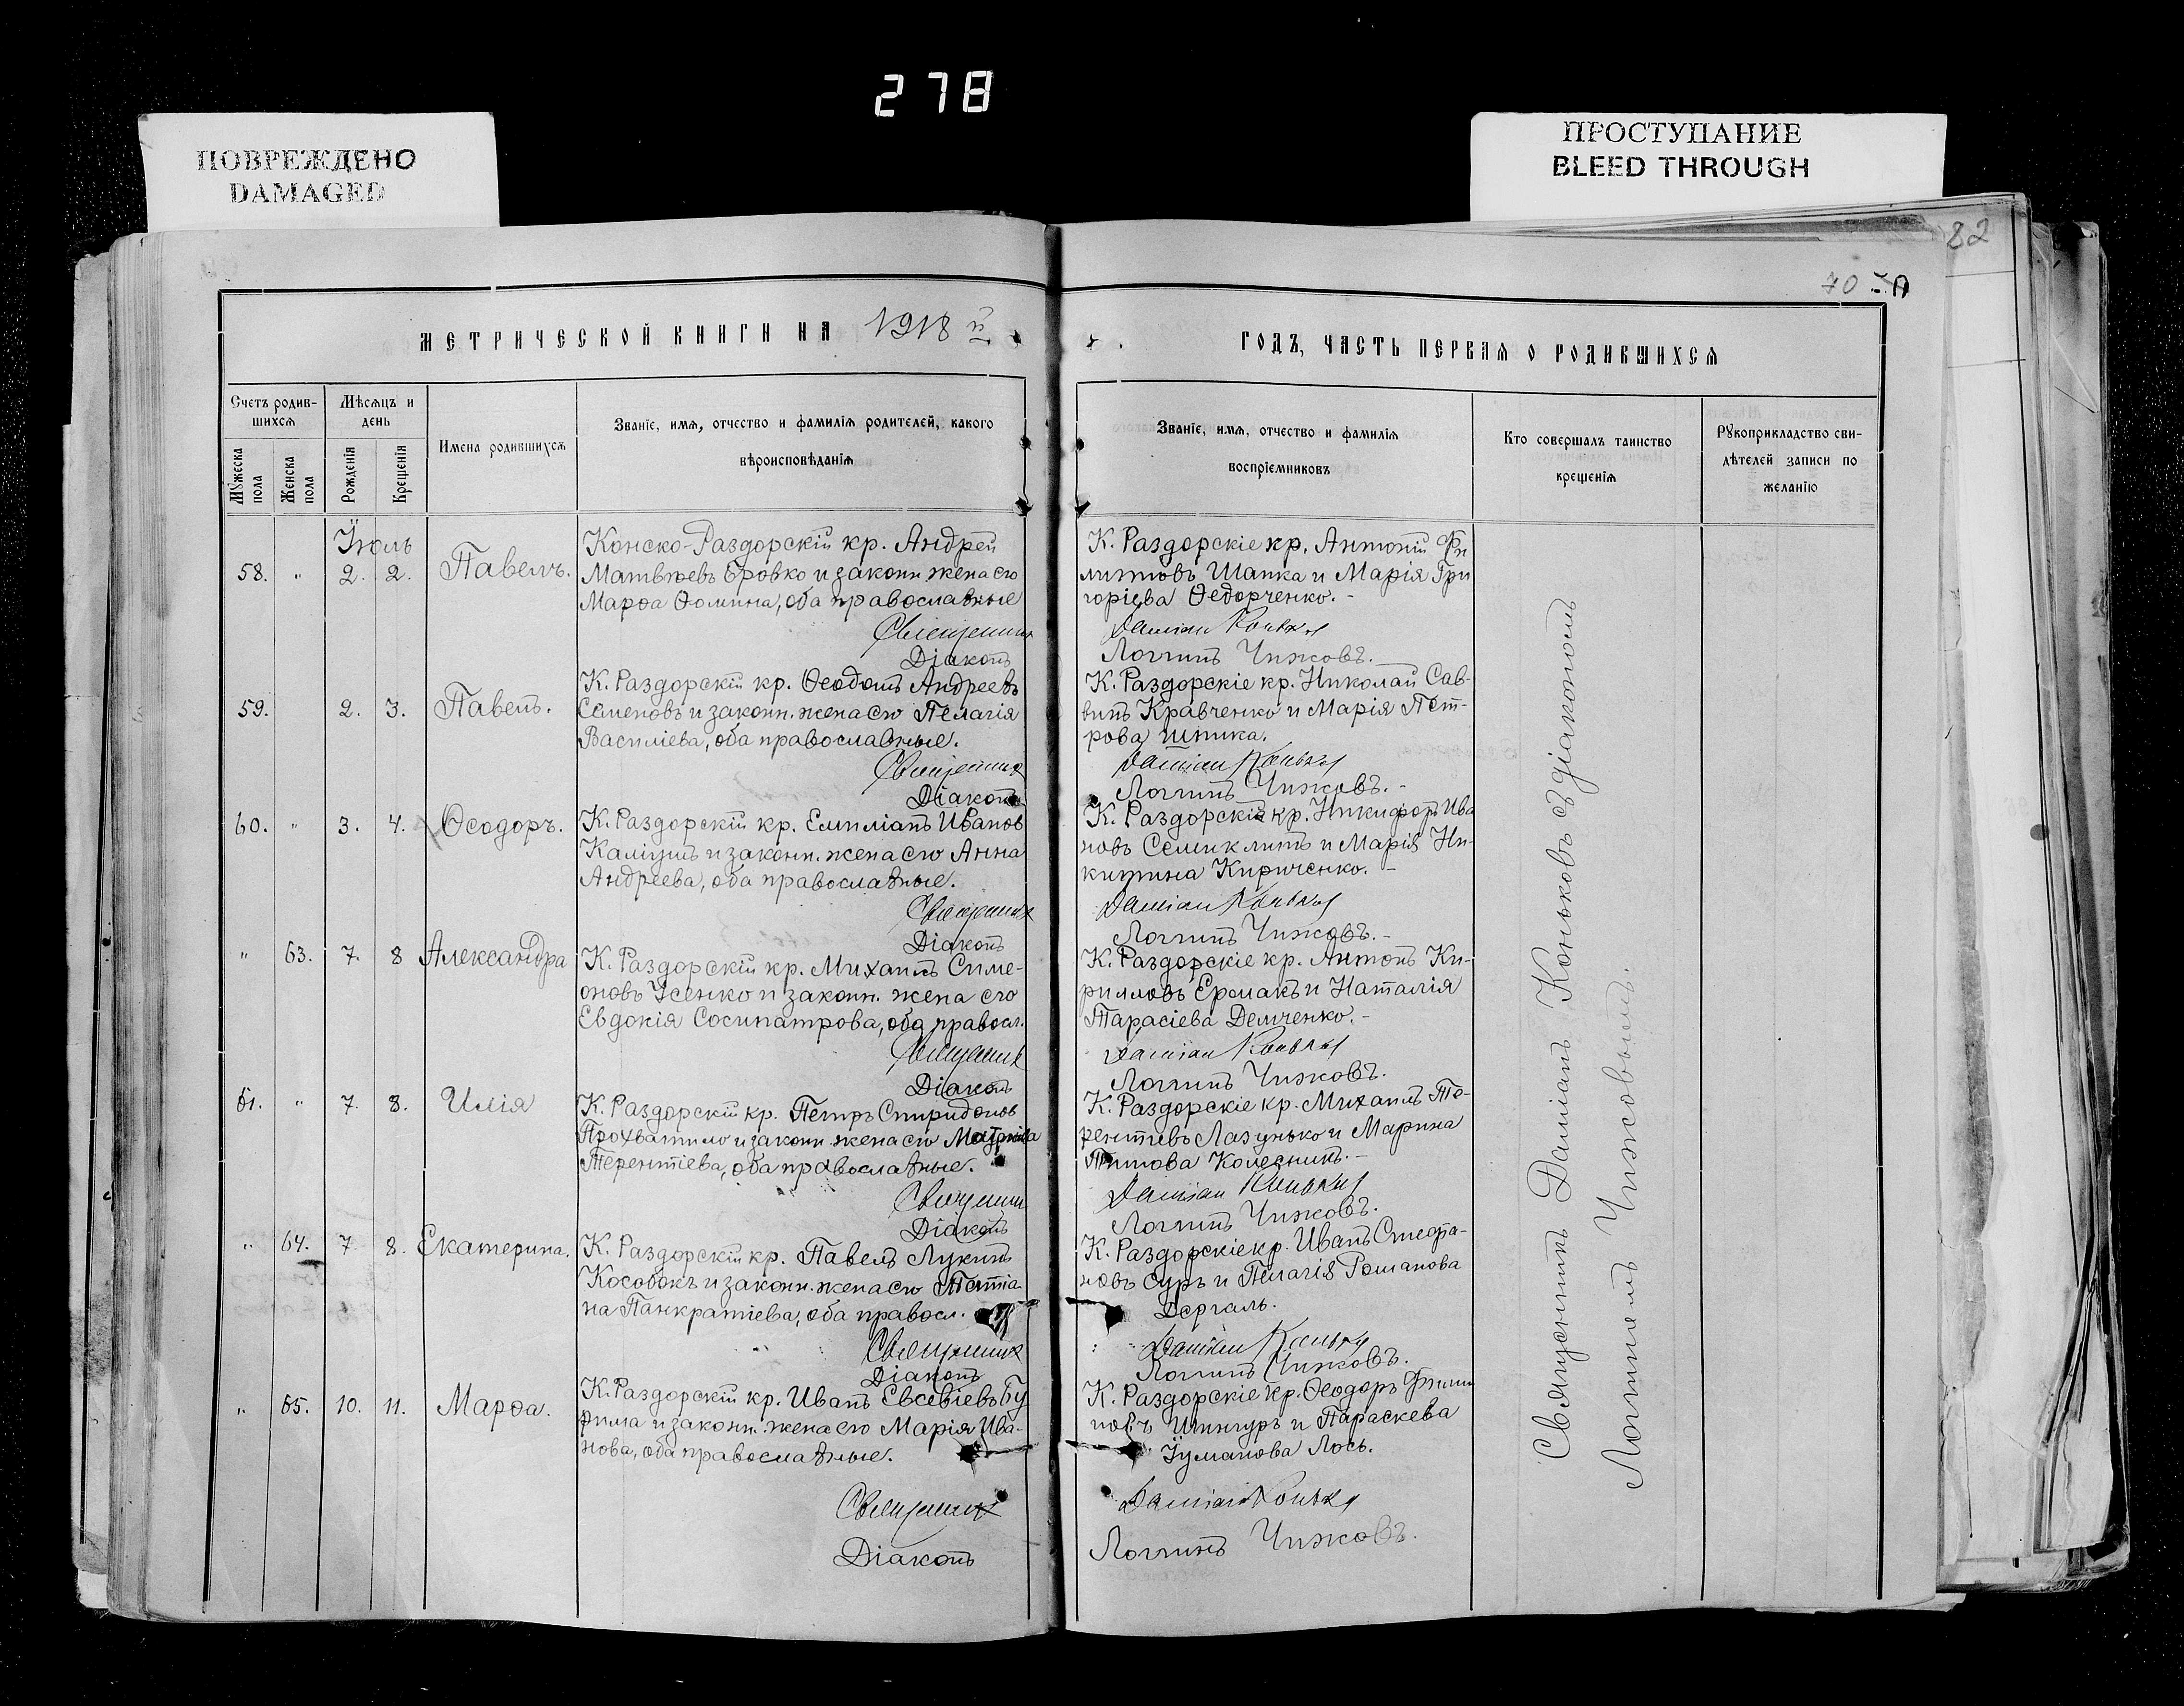 278
ПОВРЕЖДЕНО
DAMAGED
ПРОСТУПАНИЕ
BLEED THROUGH
82
70
МЕТРИЧЕСКОЙ КНИГИ НА 1918 й
ГОДЪ, ЧАСТЬ ПЕРВАЯ О РОДИВШИХСЯ
Счетъ родив-
шихся
Мѣсяцъ и
день
Мужеска
пола
Женска
пола
Рожденія
Крещенія
Имена родившихся
Званіе, имя, отчество и фамилія родителей, какого
вѣроисповѣданія
Званіе, имя, отчество и фамилія
воспріемниковъ
Кто совершалъ таинство
крещенія
Рукоприкладство сви-
дѣтелей записи по
желанію
Іюль
58. " 2. 2. Павелъ.
Конско-Раздорскій кр. Андрей
Матвѣевъ Бровко и законн. жена его
Марѳа Ѳомина, оба православные
Священникъ
Діаконъ
К. Раздорскіе кр. Антоній Фи
липповъ Шапка и Марія Гри
горіева Ѳедорченко. -
Даміанъ Коньковъ
Логгинъ Чижовъ.
59. 2. 3. Павелъ.
К. Раздорскій кр. Ѳеодотъ Андреевъ
Семеновъ и законн. жена его Пелагія
Василіева, оба православные.
Священникъ
Діаконъ
К. Раздорскіе кр. Николай Сав-
винъ Кравченко и Марія Пет-
рова Шпика.
Даміанъ Коньковъ
Логгинъ Чижовъ. -
60. " 3. 4. Ѳеодоръ.
К. Раздорскій кр. Емиліанъ Ивановъ
Каліушъ и законн. жена его Анна
Андреева, оба православные.
Священникъ
Діаконъ
К. Раздорскіе кр. Никифоръ Ива
новъ Семиклитъ и Марія Ни-
китина Кириченко. -
Даміанъ Коньковъ
Логгинъ Чижовъ. -
" 63. 7. 8 Александра
К. Раздорскій кр. Михаилъ Симе-
оновъ Усенко и законн. жена его
Евдокія Сосипатрова, оба правосл.
Священникъ
Діаконъ
К. Раздорскіе кр. Антонъ Ки-
рилловъ Ермакъ и Наталія
Тарасіева Демченко. -
Даміанъ Коньковъ
Логгинъ Чижовъ.
61. " 7. 8. Илія
К. Раздорскій кр. Петръ Спиридонов
Прохватило и законн. жена его
Терентіева, оба православные.
Священникъ
Діаконъ
К. Раздорскіе кр. Михаилъ Те-
рентіевъ Лазунько и Марина
Титова Колесникъ. -
Даміанъ Коньковъ
Логгинъ Чижовъ.
" 64. 7. 8. Екатерина.
К. Раздорскій кр. Павелъ Лукинъ
Кособокъ и законн. жена его Татіа
на Панкратіева, оба правосл.
Священникъ
Діаконъ
К. Раздорскіе кр. Иванъ Стефа-
новъ Суръ и Пелагія Романова
Дергаль.
Даміанъ Коньковъ
Логгинъ Чижовъ.
" 65. 10. 11. Марѳа.
К. Раздорскій кр. Иванъ Евсевіевъ Бу
рима и законн. жена его Марія Ива-
нова, оба православные.
Священникъ
Діаконъ
К. Раздорскіе кр. Ѳеодоръ Филип
повъ и Параскева
Лось.
Даміанъ Коньковъ
Логгинъ Чижовъ.
Священникъ Даміанъ Коньковъ съ діакономъ
Логгиномъ Чижовымъ.